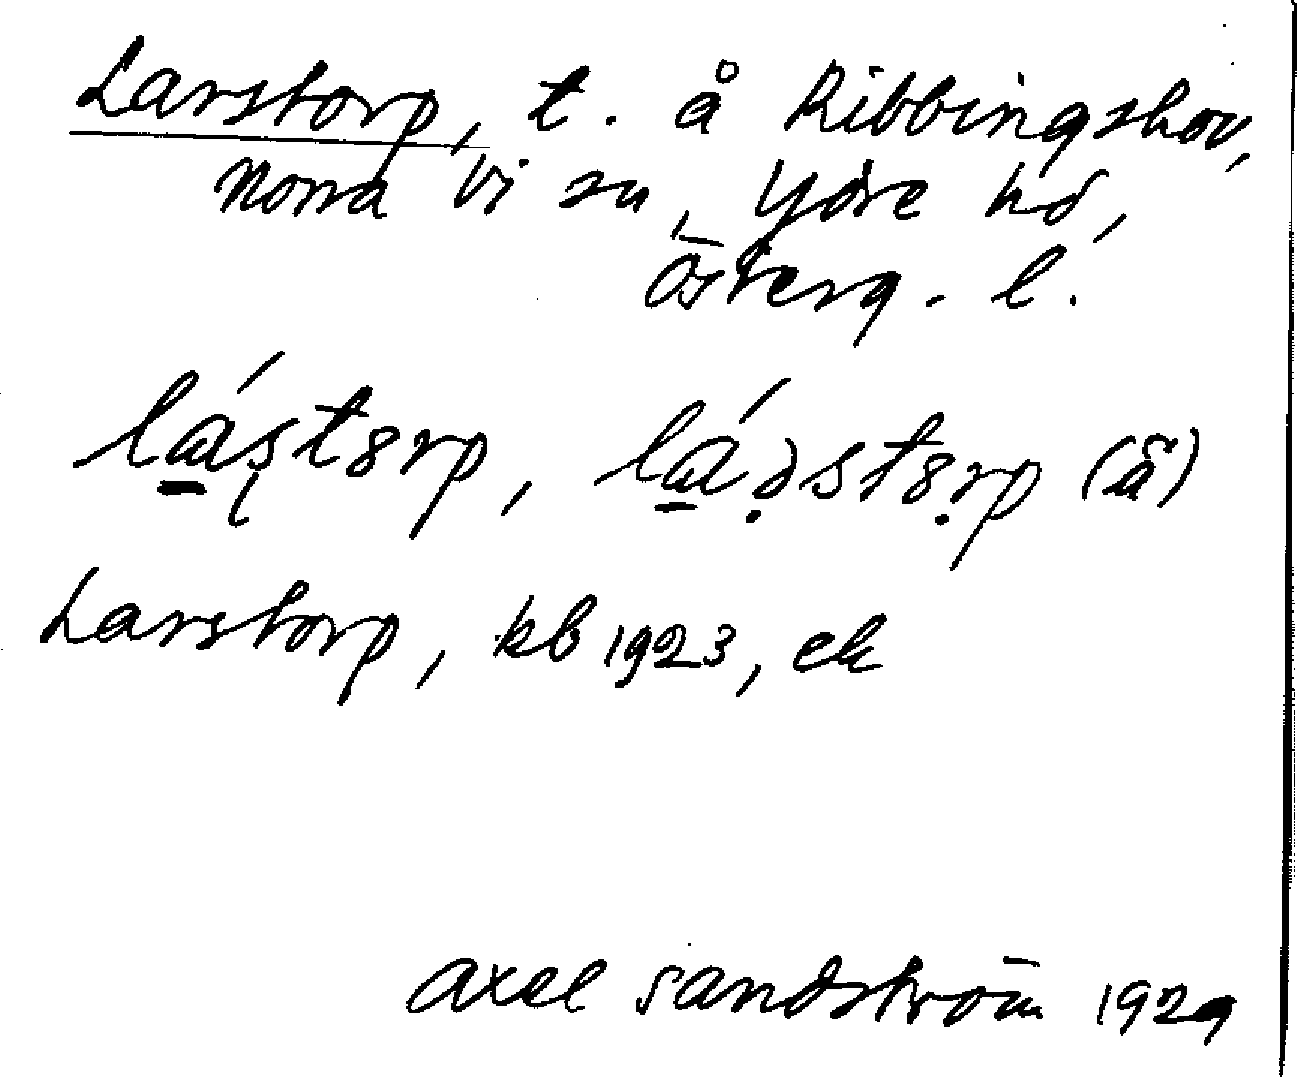 Larstorp, t. å Ribbingshov,
Norra Vi sn, Ydre hd,
Österg. l.
lá̱ʂtȣrp, lá̱ꝺ̣stȣ̣rp (å̃)
Larstorp, kb 1923, ek
Axel Sandström 1929